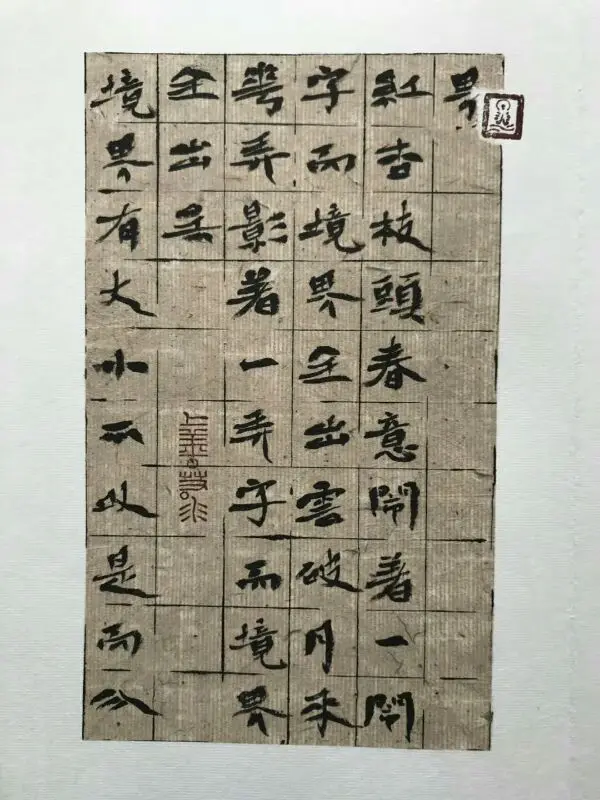 界
紅杏枝頭春意閙著一閙
字而境界全出雲破月来
華弄影著一弄字而境界
全出矣
境界有大小不以是而分